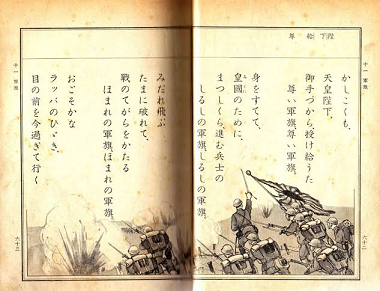 十一 軍旗
陛下給尊
かしこくも、
天皇陛下、
御手づから授け給うた
尊い軍旗、尊い軍旗。
身をすてて、
皇國のために、
まつしぐら進む兵士の
しるしの軍旗、しるしの軍旗。
六十二
十一 軍旗
みだれ飛ぶ
たまに破れて、
戰のてがらをかたる
ほまれの軍旗、ほまれの軍旗。
おごそかな
ラッパのひゞき、
目の前を今過ぎて行く
六十三